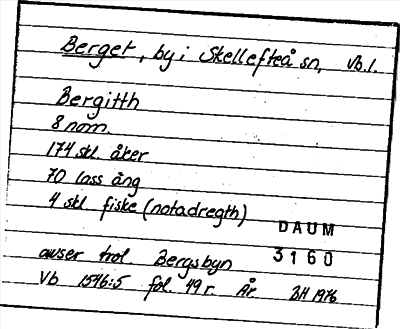 Berget, by i Skellefteå sn, Vb.l.
Bergitth
8 nom.
174 skl. åker
70 lass äng
4 skl. fiske (notadregth)
DAUM
3160
avser trol. Bergsbyn
Vb 1546:5 fol. 49 r. År. BH 1976